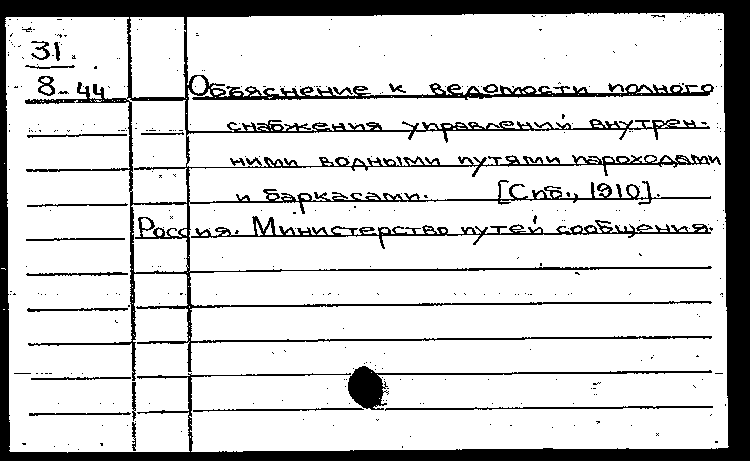 31.
8-44
Объяснение к ведомости полного
снабжения управлений внутрен-
ними водными путями пароходами
и баркасами. [Спб., 1910].
Россия. Министерство путей сообщения.